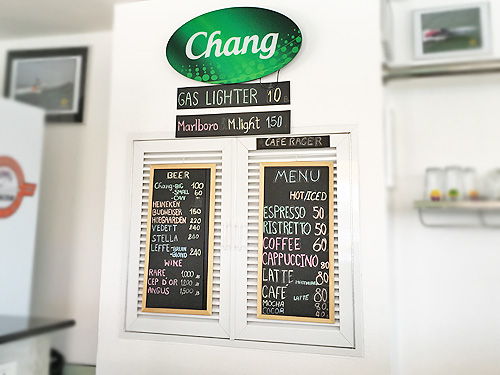 Chang
GAS LIGHTER 10
Marlboro M.light 150
CAFE RACER
BEER
Chang-BIG 100
-SMALL 60
-CAN
HEINEKEN
BUDWEISER 150
HOEGAARDEN 220
VEDETT
STELLA 240
LEFFE-BRUN 240
-BLOND
WINE
RARE 1,000
CEP D'OR 1,200
ANGUS 1,500
MENU
HOT/ICED
ESPRESSO 50
RISTRETTO 50
COFFEE 60
CAPPUCCINO 80
LATTE 80
CAFÉ LATTE 80
MOCHA 80
COCOA